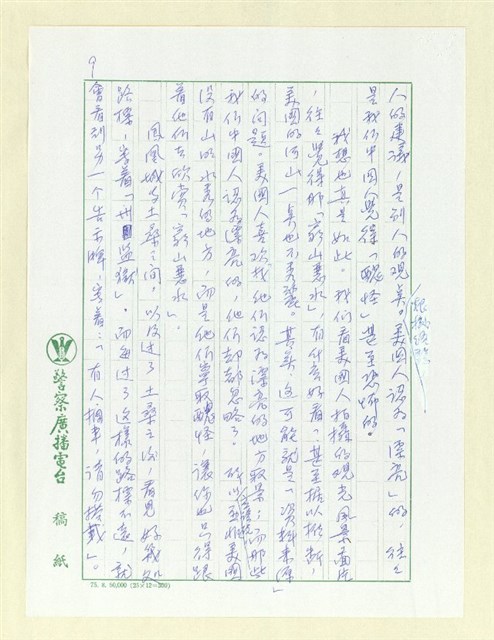 9
人的建議,是別人的觀点。美國人認為「漂亮」的,往往
是我們中國人覺得「醜怪」甚至恐怖的。
根據經驗
我想也真是如此。我們看美國人拍攝的觀光風景畫片
,往往覺得那「窮山惡水」,有什么好看?甚至據以推斷,
美國的河山一臭也不美麗。其實,這可能就是「資料來源」
的问題。美國人喜欢找他們認為漂亮的地方取景;而那些
我們中國人認為漂亮的,他們却都忽略了。所以並非美國
沒有山明水秀的地方,而是他們寧取醜怪,讓你也只得跟
着他們去欣賞「窮山惡水」。
鳳凰城与土桑之间,以及过了土桑之後,看見好幾处
路標,寫着「州監獄」。而每过了这樣的路標不遠,就
會看到另一个告示牌,寫着:「有人攔車,請勿搭載」。
警察廣播電台 稿紙
75. 8. 50,000 (25×12=300)